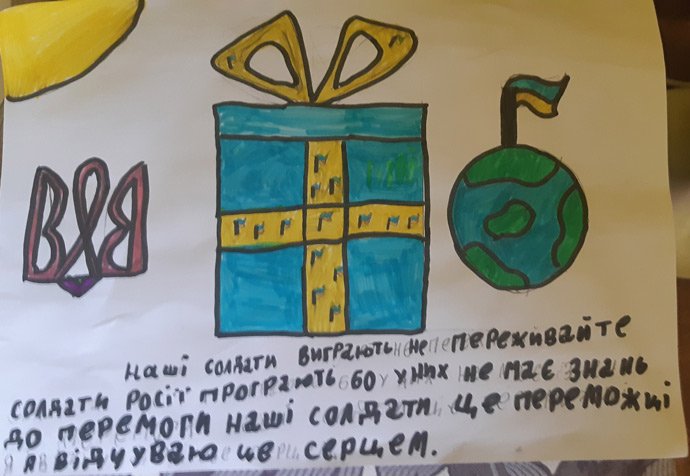 Наші солдати виграють не переживайте
солдати Росії програють бо у них не має знань
до перемоги наші солдати це переможці
я відчуваю це серцем.